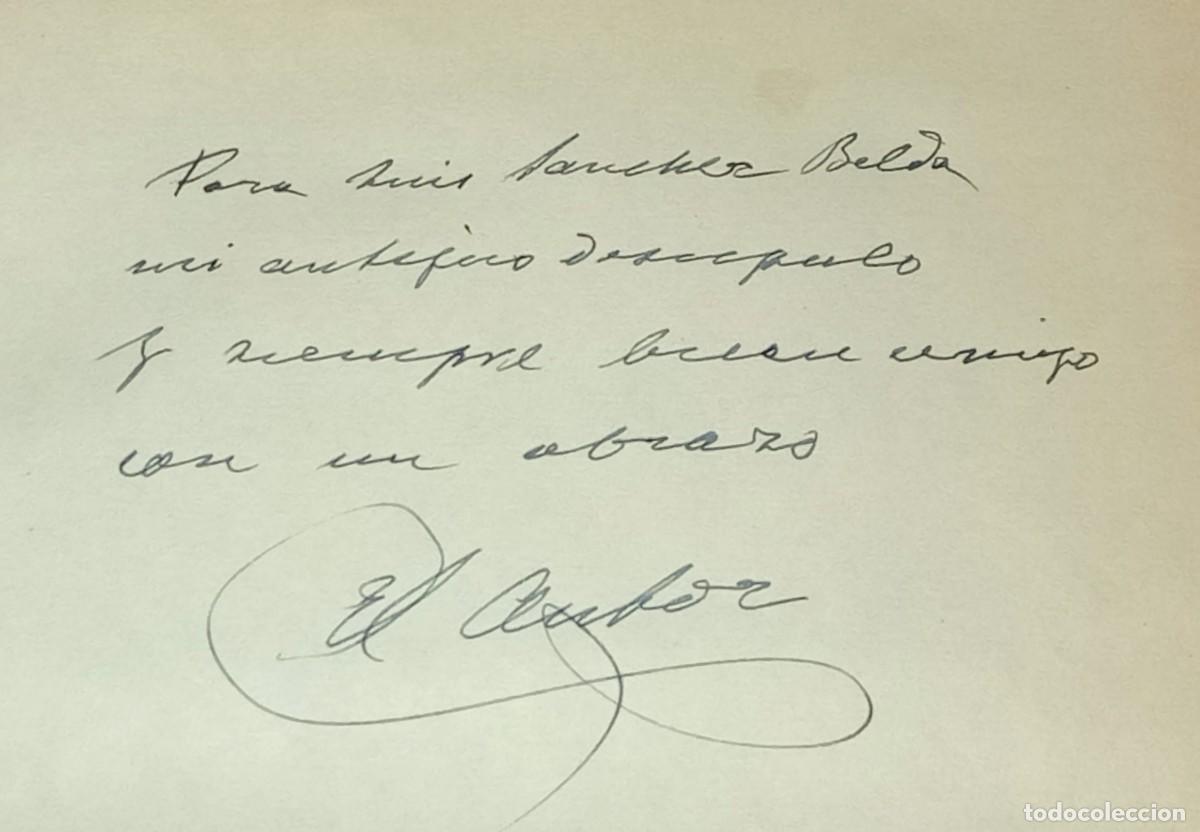 Para Luis Sanchez Belda
mi antiguo discipulo
y siempre buen amigo
con un abrazo
El Autor
todocoleccion